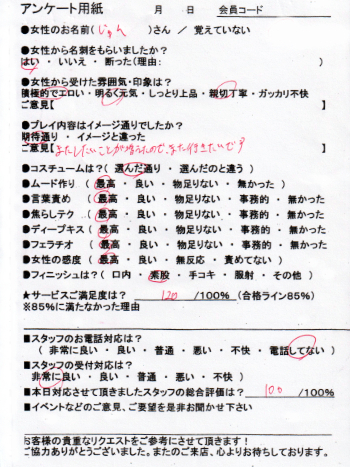 アンケート用紙　　　月　　日　会員コード
●女性のお名前(じゅん　　)さん / 覚えていない
●女性から名刺をもらいましたか?
はい ・ いいえ ・ 断った(理由:　　　　　)
●女性から受けた雰囲気・印象は?
積極的でエロい・明るく元気・しっとり上品・親切丁寧・ガッカリ不快
ご意見【　　　　　】
●プレイ内容はイメージ通りでしたか?
期待通り ・ イメージと違った
ご意見【またしたいことが増えたので、また行きたいです】
●コスチュームは?( 選んだ通り ・ 選んだのと違う )
●ムード作り ( 最高 ・ 良い ・ 物足りない ・ 無かった )
●言葉責め ( 最高 ・ 良い ・ 物足りない ・ 事務的 ・ 無かった
●焦らしテク ( 最高 ・ 良い ・ 物足りない ・ 事務的 ・ 無かった
●ディープキス ( 最高 ・ 良い ・ 物足りない ・ 事務的 ・ 無かった
●フェラチオ ( 最高 ・ 良い ・ 物足りない ・ 事務的 ・ 無かった
●女性の感度 ( 最高 ・ 良い ・ 無反応 ・ 責めてない )
●フィニッシュは?( 口内 ・ 素股 ・ 手コキ ・ 服射 ・ その他 )
★サービスご満足度は?　120　/100% (合格ライン85%)
※85%に満たなかった理由
■スタッフのお電話対応は?
( 非常に良い ・ 良い ・ 普通 ・ 悪い ・ 不快 ・ 電話してない )
■スタッフの受付対応は?
非常に良い ・ 良い ・ 普通 ・ 悪い ・ 不快 )
■本日対応させて頂きましたスタッフの総合評価は?　100　/100%
■イベントなどのご意見、ご要望を是非お聞かせ下さい
お客様の貴重なリクエストをご参考にさせて頂きます!
ご協力ありがとうございました。またのご来店、心よりお待ちしております。